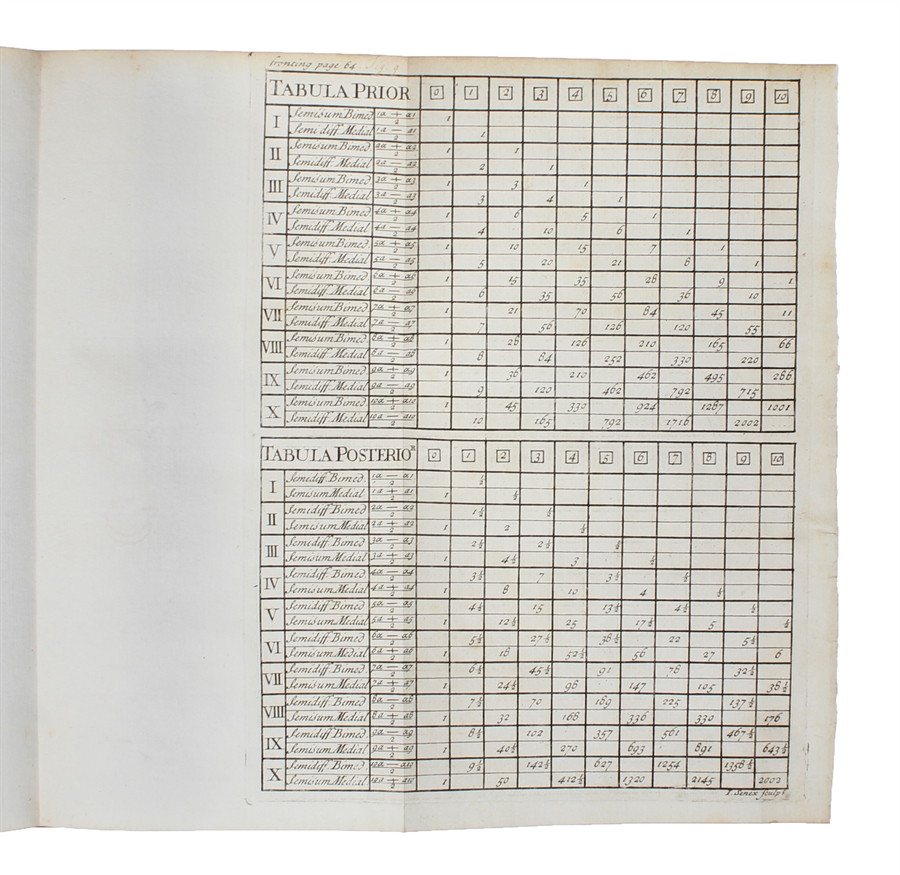 froncing page 64
TABULA PRIOR 0 1 2 3 4 5 6 7 8 9 10
I Semisum Bimed 1a + a1 / 2 1
Semidiff Medial 1a — a1 / 2 1
II Semisum Bimed 2a + a2 / 2 1 1
Semidiff Medial 2a — a2 / 2 2 1
III Semisum Bimed 3a + a3 / 2 1 3 1
Semidiff Medial 3a — a3 / 2 3 4 1
IV Semisum Bimed 4a + a4 / 2 1 6 5 1
Semidiff Medial 4a — a4 / 2 4 10 6 1
V Semisum Bimed 5a + a5 / 2 1 10 15 7 1
Semidiff Medial 5a — a5 / 2 5 20 21 8 1
VI Semisum Bimed 6a + a6 / 2 1 15 35 28 9 1
Semidiff Medial 6a — a6 / 2 6 35 56 36 10
VII Semisum Bimed 7a + a7 / 2 1 21 70 84 45 11
Semidiff Medial 7a — a7 / 2 7 56 126 120 55
VIII Semisum Bimed 8a + a8 / 2 1 28 126 210 165 66
Semidiff Medial 8a — a8 / 2 8 84 252 330 220
IX Semisum Bimed 9a + a9 / 2 1 36 210 462 495 286
Semidiff Medial 9a — a9 / 2 9 120 462 792 715
X Semisum Bimed 10a + a10 / 2 1 45 330 924 1287 1001
Semidiff Medial 10a — a10 / 2 10 165 792 1716 2002
TABULA POSTERIOR 0 1 2 3 4 5 6 7 8 9 10
I Semidiff Bimed 1a — a1 / 2 ½
Semisum Medial 1a + a1 / 2 1 ½
II Semidiff Bimed 2a — a2 / 2 1½ ½
Semisum Medial 2a + a2 / 2 1 2 ½
III Semidiff Bimed 3a — a3 / 2 2½ 2½ ½
Semisum Medial 3a + a3 / 2 1 4½ 3 ½
IV Semidiff Bimed 4a — a4 / 2 3½ 7 3½ ½
Semisum Medial 4a + a4 / 2 1 8 10 4 ½
V Semidiff Bimed 5a — a5 / 2 4½ 15 13½ 4½ ½
Semisum Medial 5a + a5 / 2 1 12½ 25 17½ 5 ½
VI Semidiff Bimed 6a — a6 / 2 5½ 27½ 38½ 22 5½
Semisum Medial 6a + a6 / 2 1 18 52½ 56 27 6
VII Semidiff Bimed 7a — a7 / 2 6½ 45½ 91 78 32½
Semisum Medial 7a + a7 / 2 1 24½ 98 147 105 38½
VIII Semidiff Bimed 8a — a8 / 2 7½ 70 189 225 137½
Semisum Medial 8a + a8 / 2 1 32 168 336 330 176
IX Semidiff Bimed 9a — a9 / 2 8½ 102 357 561 467½
Semisum Medial 9a + a9 / 2 1 40½ 270 693 891 643½
X Semidiff Bimed 10a — a10 / 2 9½ 142½ 627 1254 1358½
Semisum Medial 10a + a10 / 2 1 50 412½ 1320 2145 2002
I. Senex sculpt